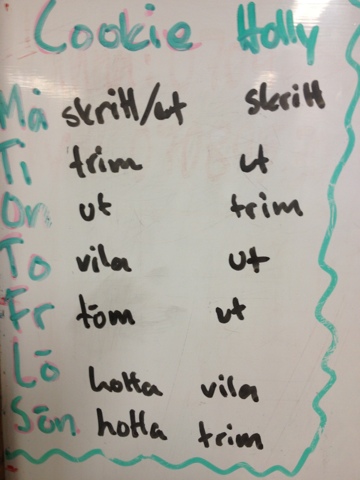 Cookie Holly
Må skritt/ut skritt
Ti trim ut
On ut trim
To vila ut
Fr töm ut
Lö hotta vila
Sön hotta trim